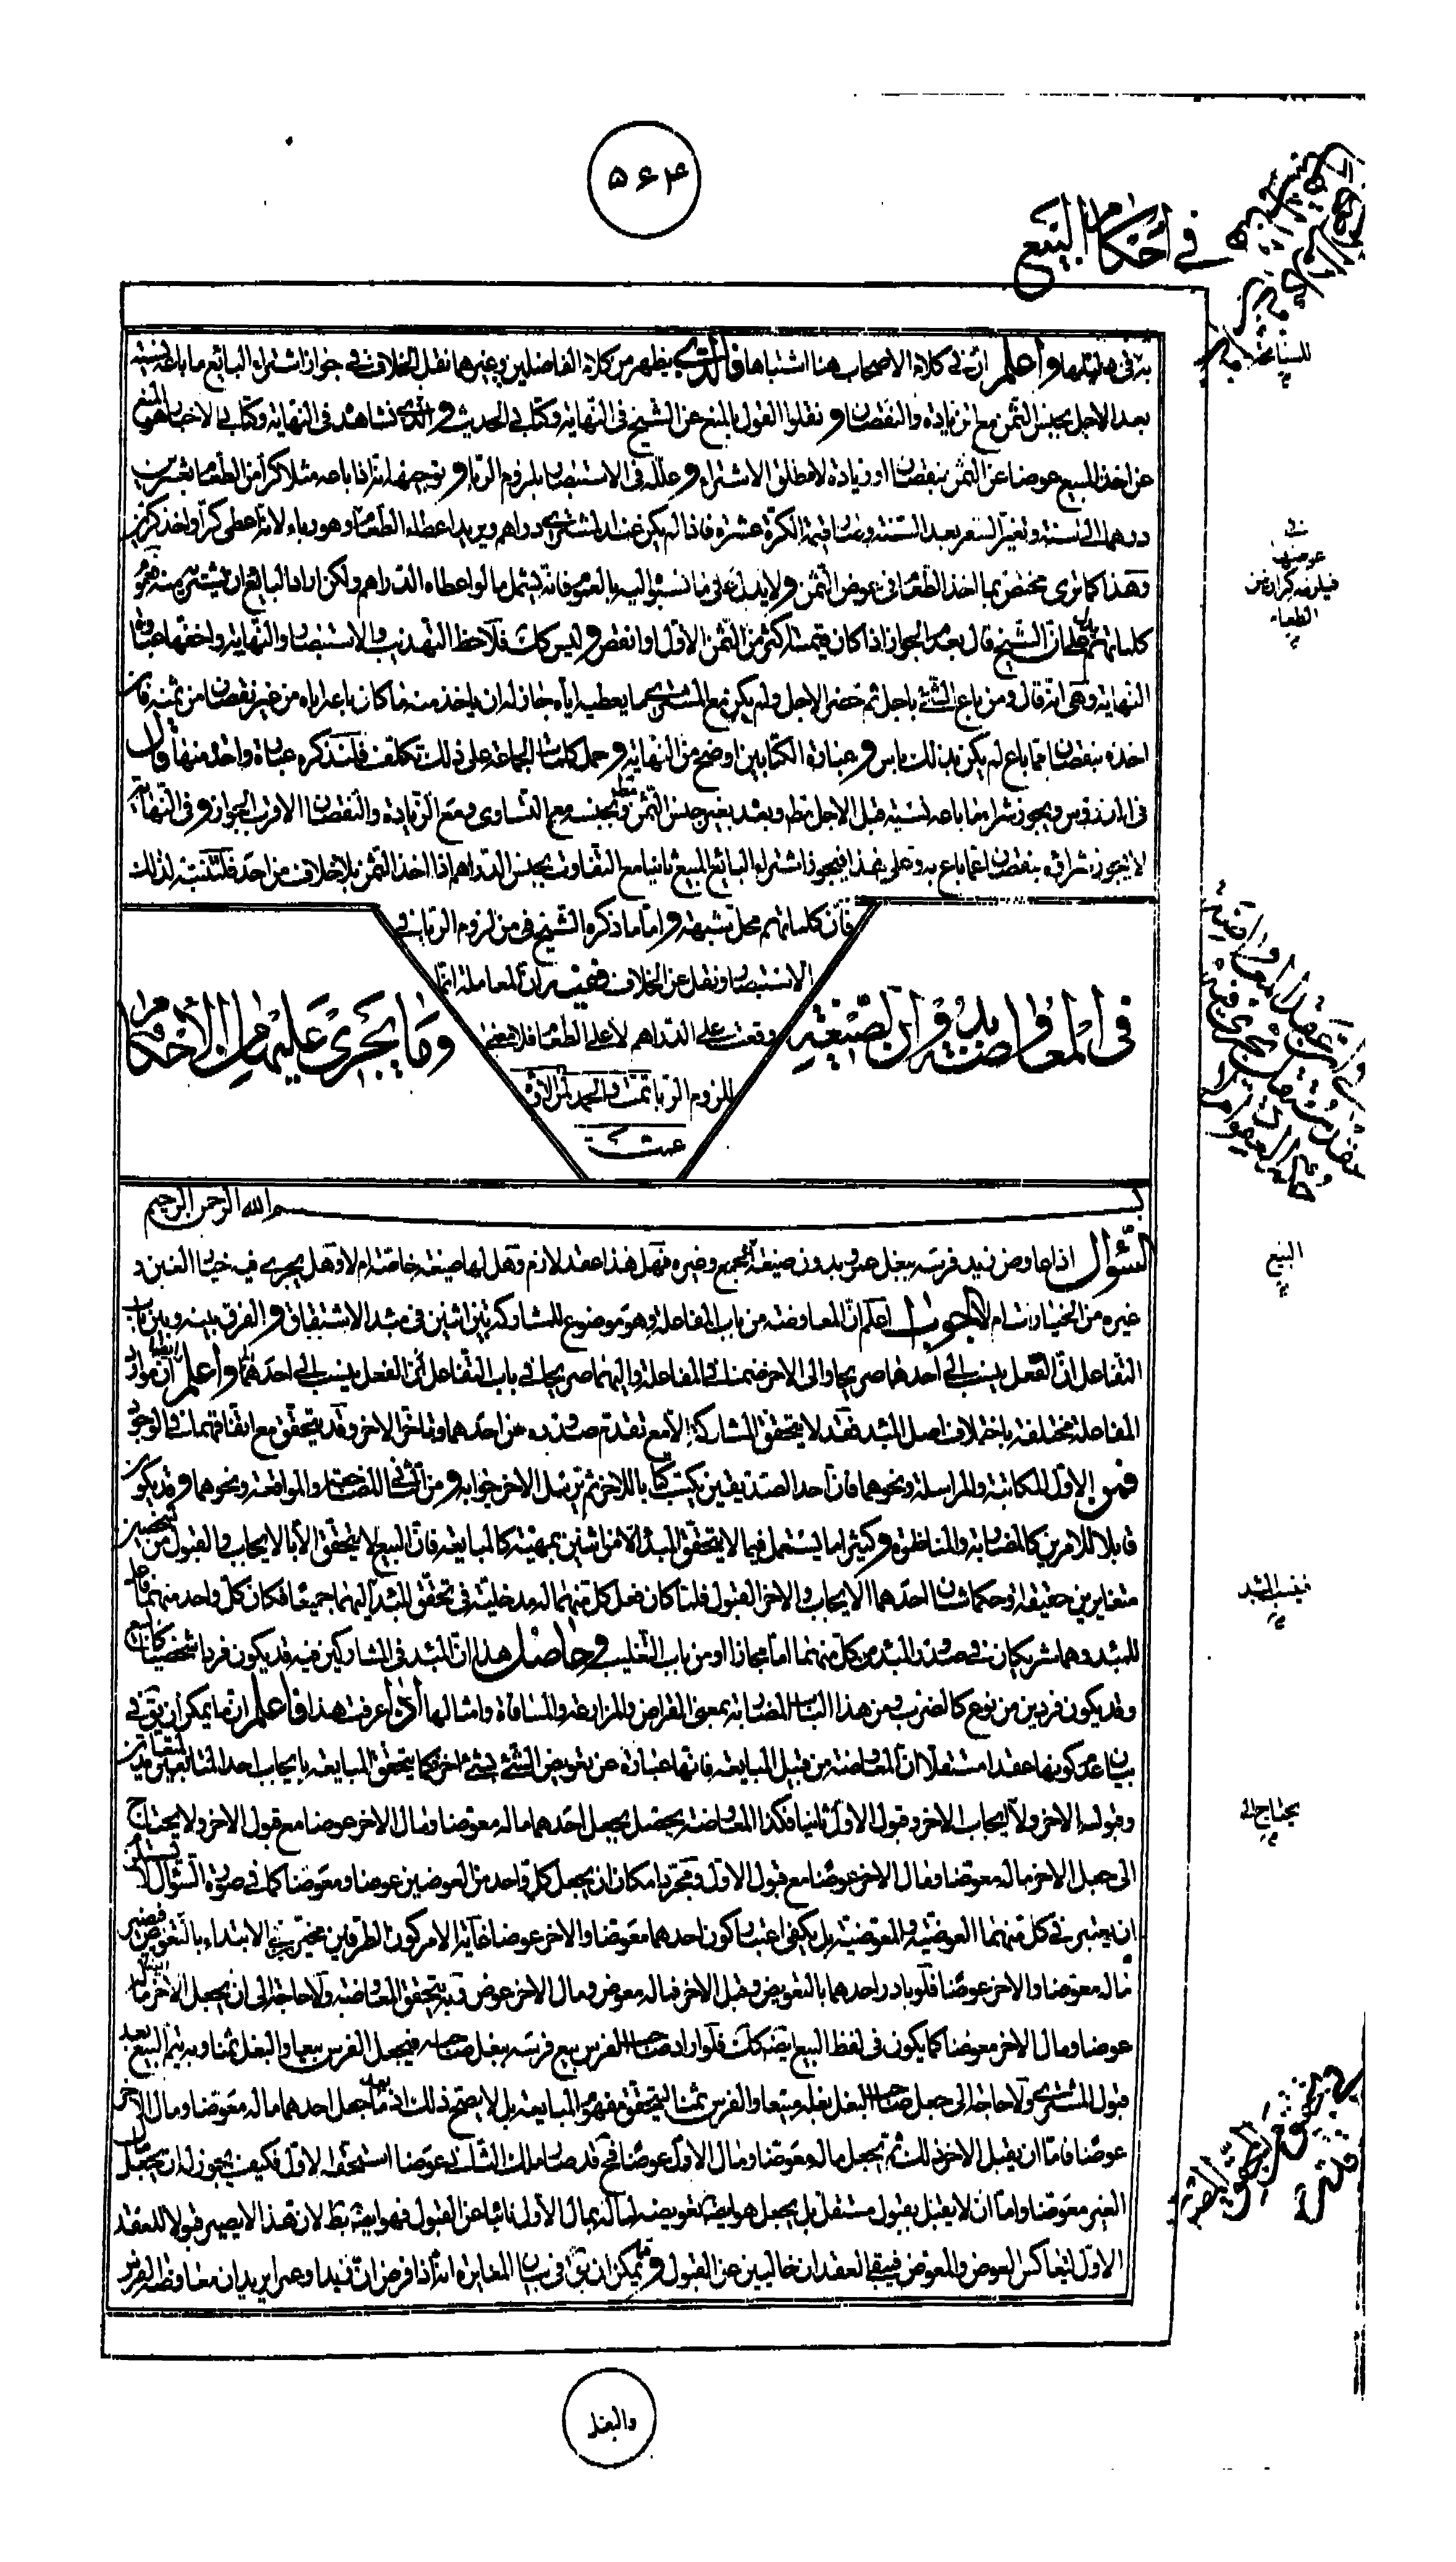 ۵۶۴
في أحكام البيع
واعلم ان في كلام الاصحاب هنا اشتباها فالذى يظهر من كلام الفاضلين وغيرهما نقل الخلاف في جواز اشتراء البائع ما باعه نسيئة
بعد الاجل بجنس الثمن مع الزيادة والنقصان ونقلوا القول بالمنع عن الشيخ في النهاية وكتابي الحديث والذى نشاهد في النهاية وكتابي الاخبار هو المنع
عن اخذ المبيع عوضا عن الثمن بنقصان او زيادة لا مطلق الاشتراء وعلله في الاستبصار بلزوم الربا وتوجيهه انه اذا باعه مثلا كرا من الطعام بعشرين
درهما الى سنة وتغير السعر بعد السنة وصار قيمة الكر عشرة فاذا لم يكن عند المشترى دراهم ويريد اعطاء الطعام وهو رباء لانه اعطى كرا واخذ كرين
وهذا كما ترى مختص بما اخذ الطعام في عوض الثمن ولا يدل على ما نسبوا اليه بالعموم فانه يشمل ما لو اعطاه الدراهم ولكن اراد البائع ان يشترى منه
كلماتهم ان الشيخ قال بعدم الجواز اذا كان قيمته اكثر من الثمن الاول او انقص وليس كك فلاحظ التهذيب والاستبصار والنهاية واخفها عبارة
النهاية وهى انه قال ومن باع الشئ باجل ثم حضر الاجل ولم يكن مع المشترى ما يعطيه اياه جاز له ان ياخذ منه ما كان باعه اياه من غير نقصان من ثمنه فان
اخذه بنقصان مما باع لم يكن بذلك باس وعبارة الكتابين اوضح من النهاية وحمل كلمات الجماعة على ذلك تكلف فلنذكر عبارة واحد منها قال
فى الدروس ويجوز شراء ما باعه نسيئة قبل الاجل مطلقا وبعده بغير جنس الثمن وبجنسه مع التساوى ومع الزيادة والنقصان الاقرب الجواز وفى النهاية
لا يجوز شراؤه بنقصان عما باعه به وعلى هذا فيجوز اشتراء البائع المبيع ثانيا مع التفاوت بجنس الدراهم اذا اخذ الثمن بلا خلاف من احد فلتتنبه لذلك
فان كلماتهم محل شبهة واما ما ذكره الشيخ من لزوم الربا في
الاستبصار ونقل عن الخلاف ففيه ان المعاملة انما
وقعت على الدراهم لا على الطعام فلا معنى
للزوم الربا تمت
تمت
في المعاوضة بدون الصيغة
وما يجرى عليها من الأحكام
بسم الله الرحمن الرحيم
السؤال اذا عاوض زيد فرسه ببغل عمرو بدون صيغة البيع وغيره فهل هذا عقد لازم وهل لها صيغة خاصة ام لا وهل يجرى فيه خيار الغبن و
غيره من الخيارات ام لا الجواب اعلم ان المعاوضة من باب المفاعلة وهو موضوع للمشاركة بين اثنين في مبدء الاشتقاق والفرق بينه وبين باب
التفاعل ان الفعل ينسب الى احدهما صريحا والى الاخر ضمنا في المفاعلة واليهما صريحا في باب التفاعل واعلم ايضا ان موارد
المفاعلة مختلفة باختلاف اصل المبدء فقد لا يتحقق المشاركة الا مع تقدم صدوره عن احدهما وتاخر الاخر وقد يتحقق مع اتفاقهما في الوجود
فمن الاول المكاتبة والمراسلة ونحوهما فان احد الصديقين يكتب كتابا للاخر ثم يرسل الاخر جوابه ومن الثاني المصاحبة والموافقة ونحوهما وقد يكون
قابلا للامرين كالمضاربة والمناظرة وكثيرا ما يستعمل فيما لا يتحقق المبدء الا من اثنين بهيئة كالمبايعة فان البيع لا يتحقق الا بالايجاب والقبول من شخصين
متغايرين حقيقة وحكما شان احدهما الايجاب والاخر القبول فلما كان فعل كل منهما له مدخلية في تحقق المبدء اليهما جميعا فكان كل واحد منهما فاعل
للمبدء وهما شريكان في صدور المبدء من كل منهما اما مجازا او من باب التغليب وحاصل هذا ان المبدء فى المشاركين فيه قد يكون فردا شخصيا
وقد يكون فردين من نوع كالضرب ومن هذا الباب المضاربة بمعنى القراض والمزارعة والمساقاة وامثالها اذا عرفت هذا فاعلم ان ما يمكن ان يق في
بيان عدم كونها عقدا مستقلا ان المعاوضة من قبيل المبايعة فانها عبارة عن تعويض الشئ بشئ اخر فكما يتحقق المبايعة بايجاب احد المتبايعين
وقبول الاخر ولا ايجاب الاخر وقبول الاول ثانيا فكذا المعاوضة يحصل بجعل احدهما ماله معوضا ومال الاخر عوضا مع قبول الاخر ولا يحتاج
الى جعل الاخر ماله معوضا ومال الاخر عوضا مع قبول الاول ومجرد امكان ان يجعل كل واحد من العوضين عوضا ومعوضا كما في صورة السؤال لا يستلزم
ان يعتبر في كل منهما العوضية والمعوضية بل يكفى اعتبار كون احدهما معوضا والاخر عوضا غاية الامر كون الطرفين مخيرين في الابتداء بالتعويض فيصير
ماله معوضا والاخر عوضا فلو بادر احدهما بالتعويض وقبل الاخر فماله معوض ومال الاخر عوض وبه يتحقق المعاوضة ولا حاجة الى ان يجعل الاخر ماله
عوضا ومال الاخر معوضا كما يكون فى لفظ البيع ايضا كك فلو اراد صاحب الفرس بيع فرسه ببغل صاحبه فيجعل الفرس مبيعا والبغل ثمنا وبه يتم البيع بعد
قبول المشترى ولا حاجة الى جعل صاحب البغل بغله مبيعا والفرس ثمنا ليتحقق مفهوم المبايعة بل لا يصح ذلك اذ بعد ما جعل احدهما ماله معوضا ومال الاخر
عوضا فاما ان يقبل الاخر ذلك ثم يجعل ماله معوضا ومال الاول عوضا فح قد صار ملك الثاني عوضا استحقه الاول فكيف يجوز له ان يجعل
الغير معوضا واما ان لا يقبل بقبول مستقل بل يجعل هو ايضا تعويضه لماله بمال الاول نائبا عن القبول فهو ايضا بط لان هذا لا يصير قبولا للعقد
الاول لتعاكس العوض والمعوض فيبقى العقدان خاليين عن القبول وما يمكن ان يق فى بيان المغايرة انه اذا فرض ان زيدا وعمرا يريدان معاوضة الفرس
البيع
نفس المبدء
يحتاج الى